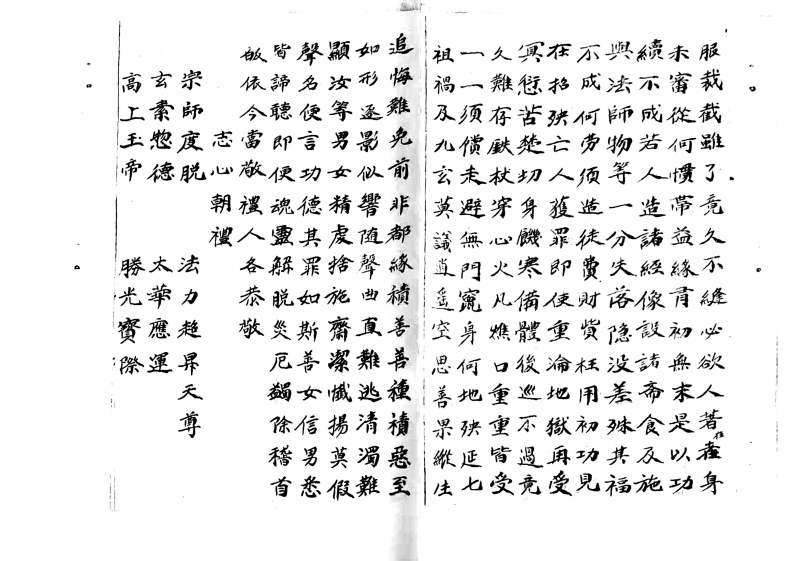 服裁截雖了竟久不縫必欲人著在產身
未審從何慣帶益緣有初無末是以功
續不成若人造諸經像設諸斋食及施
與法師物等一分失落隐没差殊其福
不成何劳須造徒費財貨枉用初功見
在招殃亡人獲罪即使重淪地獄再受
冥愆苦楚切身饑寒備體後巡不過竟
久難存鉄杖穿心火凡燋口重重皆受
一一須償走避無門竄身何地殃延七
祖禍及九玄莫議逍遥空思善果縱生
追悔難免前非都緣積善善種積惡至
如形逐影似響随聲曲直難逃清濁難
顯汝等男女精虔捨施齋潔懺揚莫假
聲名便言功德其罪如斯善女信男悉
皆諦聽即便魂靈解脱災厄蠲除稽首
皈依今當敬禮人各恭敬
志心朝禮
宗師度脱 法力超昇天尊
玄素惣德 太華應運
高上玉帝 勝光寶際